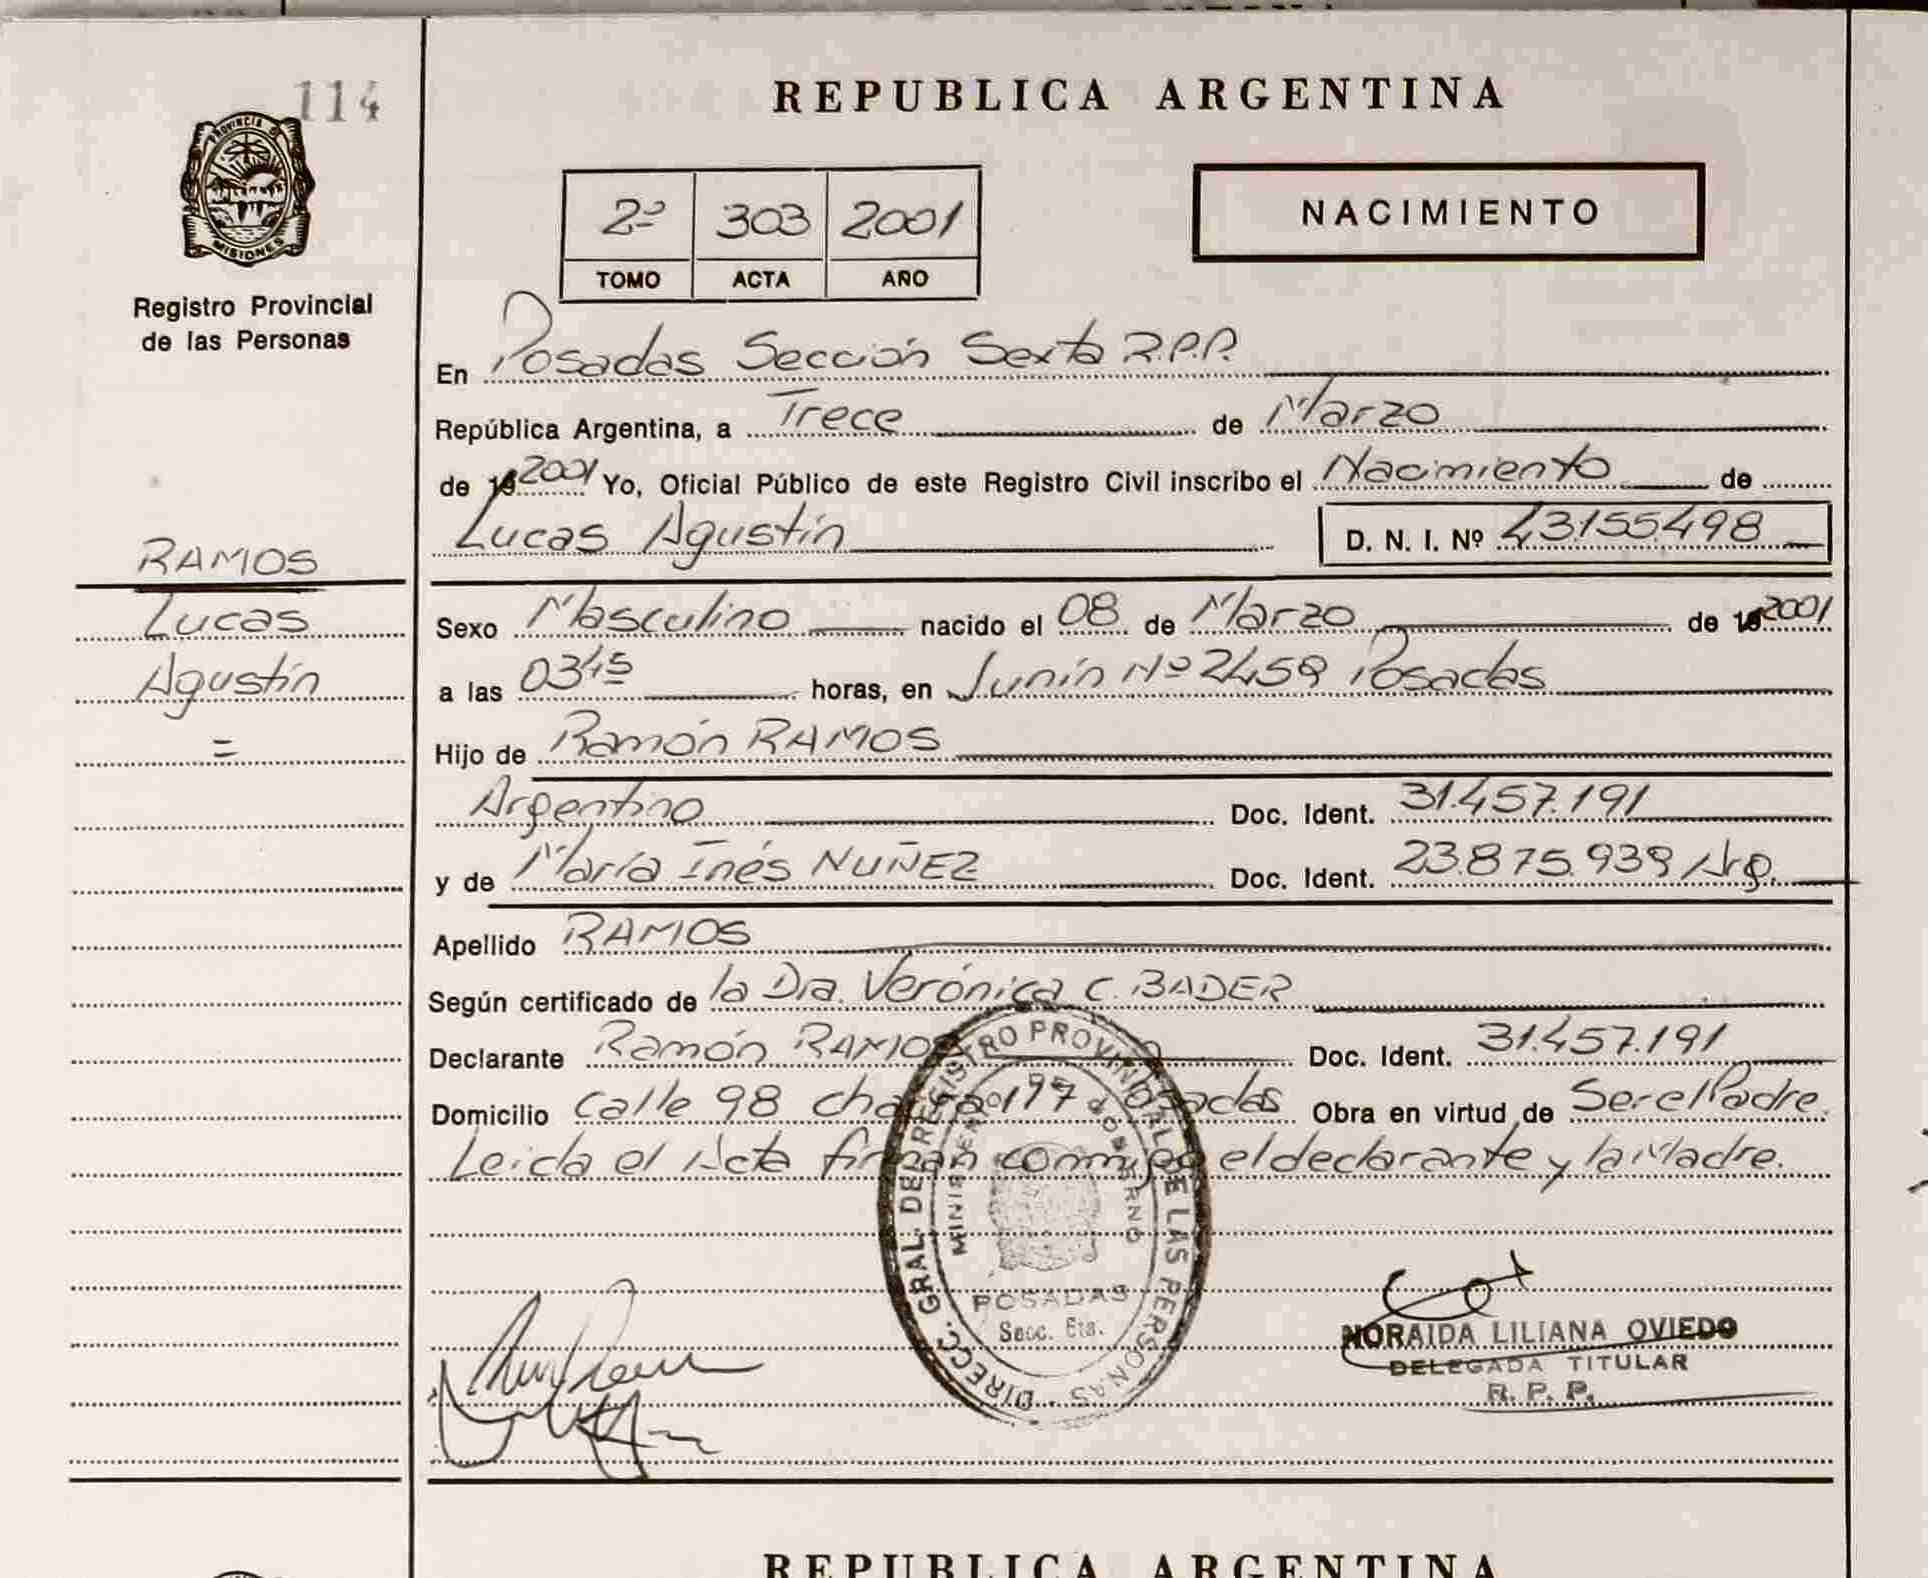 114
PROVINCIA D
MISIONES
Registro Provincial
de las Personas
REPUBLICA ARGENTINA
2º 303 2001
TOMO ACTA AÑO
NACIMIENTO
En Posadas Sección Sexta R.P.P.
República Argentina, a Trece de Marzo
de 19 2001 Yo, Oficial Público de este Registro Civil inscribo el Nacimiento de
Lucas Agustín D. N. I. Nº 43155498
RAMOS
Lucas
Agustín
=
Sexo Masculino nacido el 08 de Marzo de 19 2001
a las 0345 horas, en Junín Nº 2459 Posadas
Hijo de Ramón RAMOS
Argentino Doc. Ident. 31.457.191
y de María Inés NUÑEZ Doc. Ident. 23.875.939 Arg.
Apellido RAMOS
Según certificado de la Dra. Verónica C. BADER
Declarante Ramón RAMOS Doc. Ident. 31.457.191
Domicilio Calle 98 nº 177 Posadas Obra en virtud de Ser el Padre
Leída el Acta firman conmigo el declarante y la Madre.
DIRECC. GRAL. DEL REGISTRO PROVINCIAL DE LAS PERSONAS
GOBIERNO
POSADAS
Secc. 6ta.
NORAIDA LILIANA OVIEDO
DELEGADA TITULAR
R. P. P.
REPUBLICA ARGENTINA